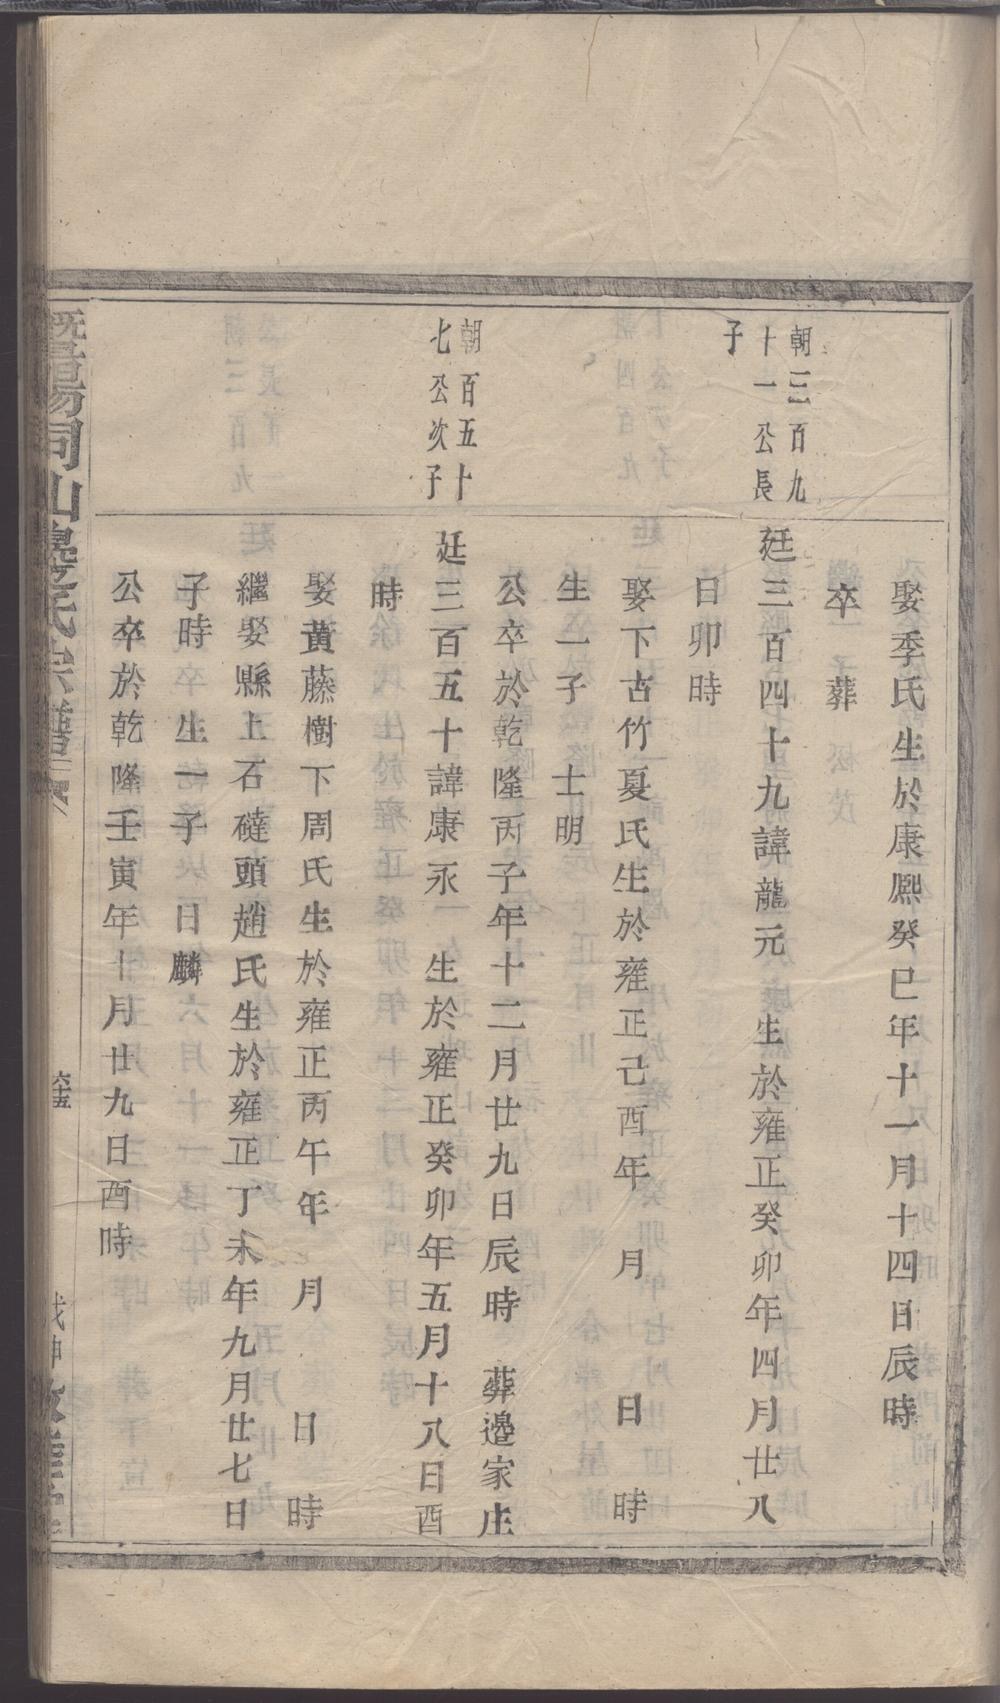 娶季氏生於康熈癸巳年十一月十四日辰時
卒　葬
朝三百九
十一公長
子
廷三百四十九諱龍元　生於雍正癸卯年四月廿八
日卯時
娶下古竹夏氏生於雍正己酉年　月　日　時
生一子　士明
公卒於乾隆丙子年十二月廿九日辰時　葬邉家庄
朝百五十
七公次子
廷三百五十諱康永　生於雍正癸卯年五月十八日酉
時
娶黃藤樹下周氏生於雍正丙午年　月　日　時
繼娶縣上石磋頭趙氏生於雍正丁未年九月廿七日
子時　生一子　日麟
公卒於乾隆壬寅年十月廿九日酉時
暨陽同山邊氏宗譜